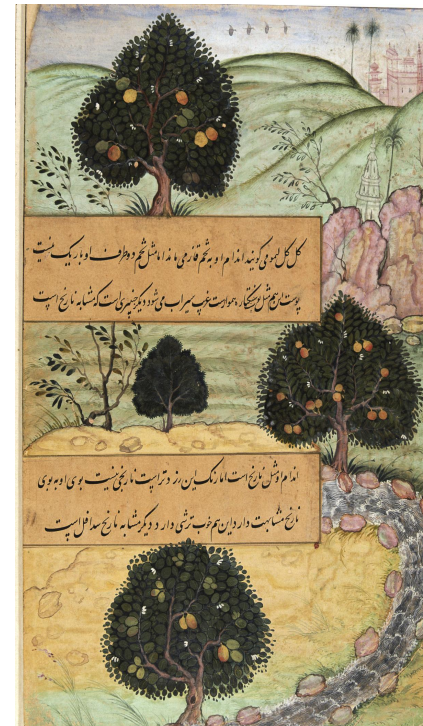 کل کل لیمو می گویند اندام او به تخم قاز می ماند اما مثل تخم دو طرف او باریک نیست
پوست این هم مثل سنگتره هموار است خوب سیراب می شود دیگر جنبیری است که مشابه نارنج است
اندام او مثل نارنج است اما رنگ این زردتر است نارنجی نیست بوی او به بوی
نارنج مشابهت دارد این هم خوب ترشی دارد دیگر مشابه نارنج سدافل است